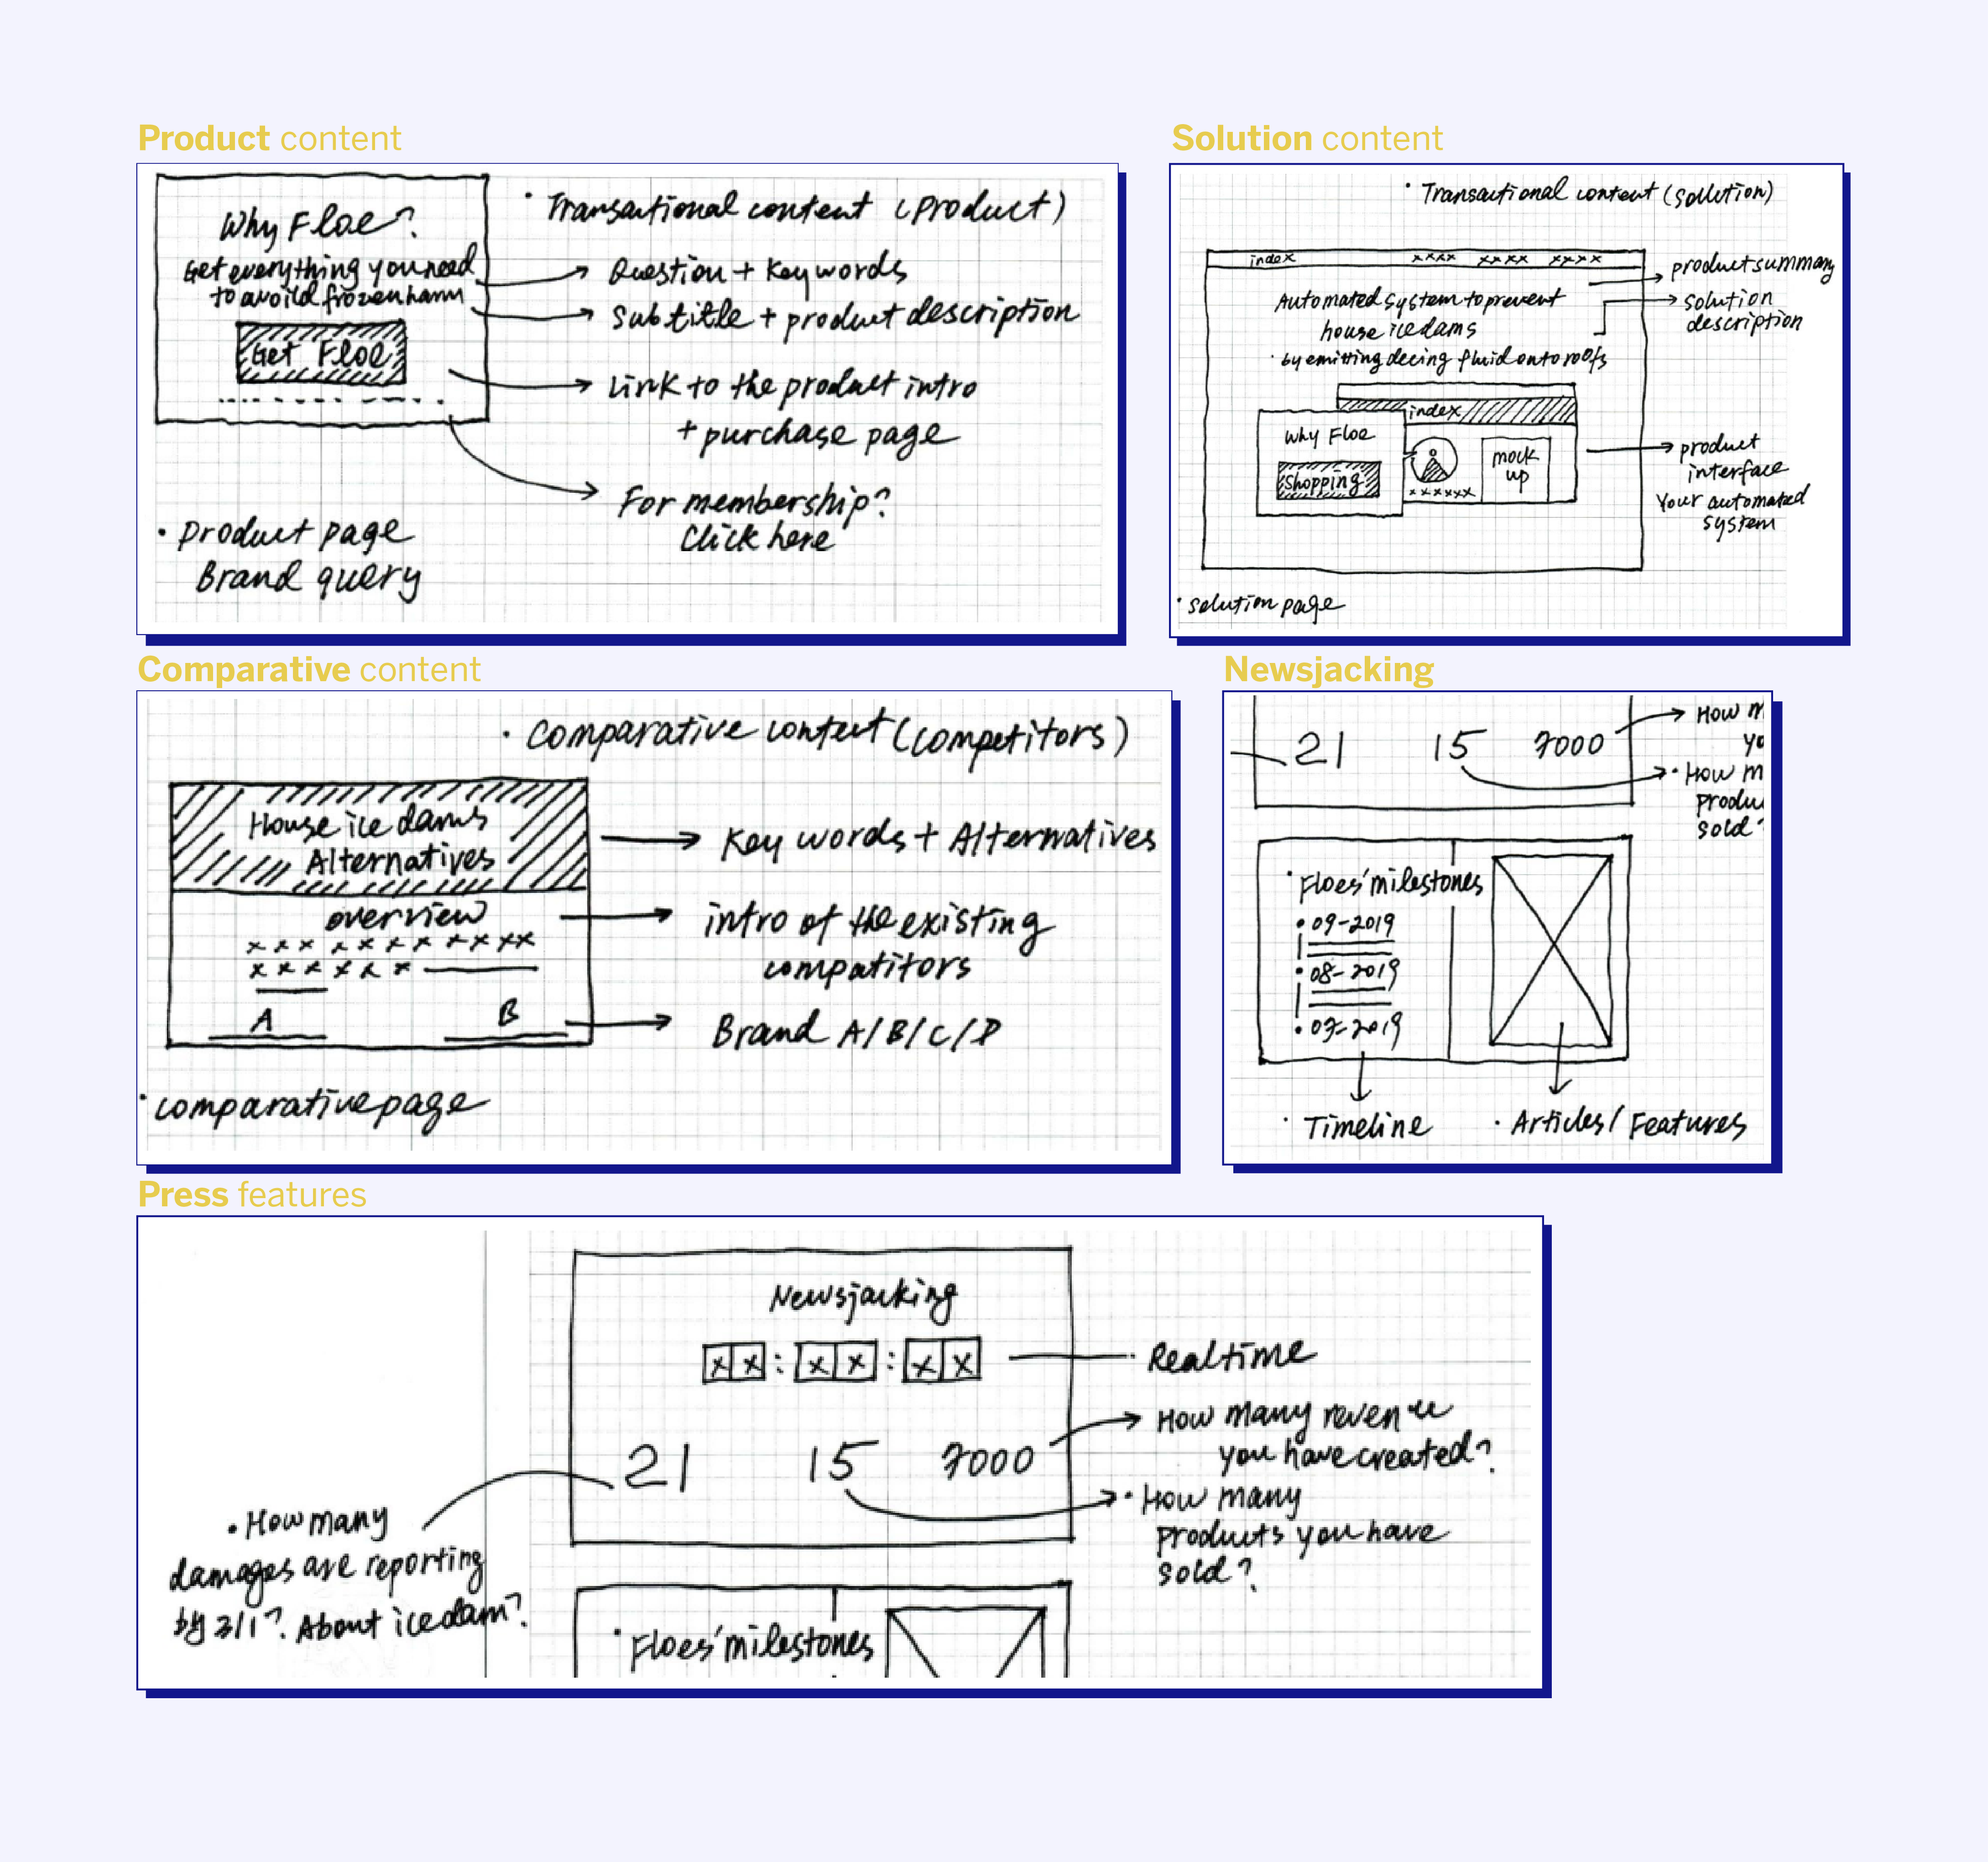 Product content
Why Floe?
Get everything you need
to avoild frozen harm
Get Floe
• Transactional content (product)
Question + Keywords
Subtitle + product description
Link to the product intro
+ purchase page
For membership?
Click here
• Product page
Brand query
Solution content
• Transactional content (solution)
index xxxx xxxx xxxx
Automated system to prevent
house ice dams
• by emitting deicing fluid onto roofs
product summary
solution
description
index
Why Floe
Shopping
xxxxxx
mock
up
product
interface
Your automated
system
• solution page
Comparative content
• Comparative content (competitors)
House ice dams
Alternatives
Key words + Alternatives
overview
xxx xxxx xxxx
xxxxxx
intro of the existing
compatitors
A B
Brand A/B/C/D
• comparative page
Newsjacking
21 15 7000
How m
yo
• How m
produ
sold?
• Floes' milestones
• 09-2019
• 08-2019
• 07-2019
• Timeline
• Articles/Features
Press features
Newsjacking
xx : xx : xx
Realtime
21 15 7000
How many revenue
you have created?
• How many
products you have
sold?
• How many
damages are reporting
by 3/1? About ice dam?
• Floes' milestones